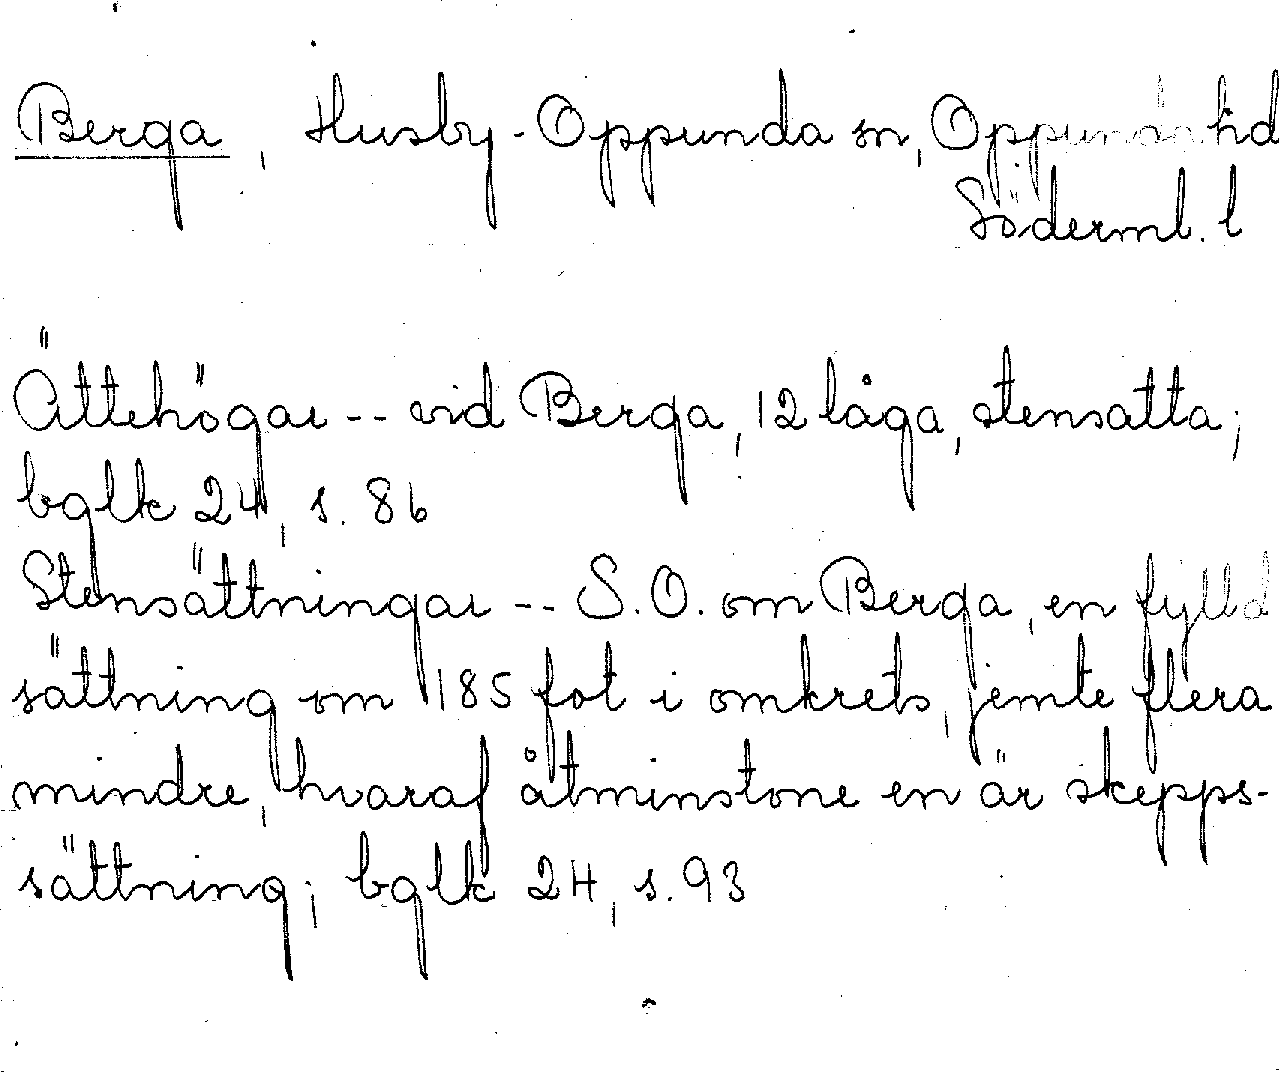 Berga, Husby-Oppunda sn, Oppunda hd
Söderml. l
Ättehögar -- vid Berga, 12 låga, stensatta;
bglk 24, s. 86
Stensättningar -- S.O. om Berga, en fylld
sättning om 185 fot i omkrets, jemte flera
mindre, hvaraf åtminstone en är skepps-
sättning; bglk 24, s. 93